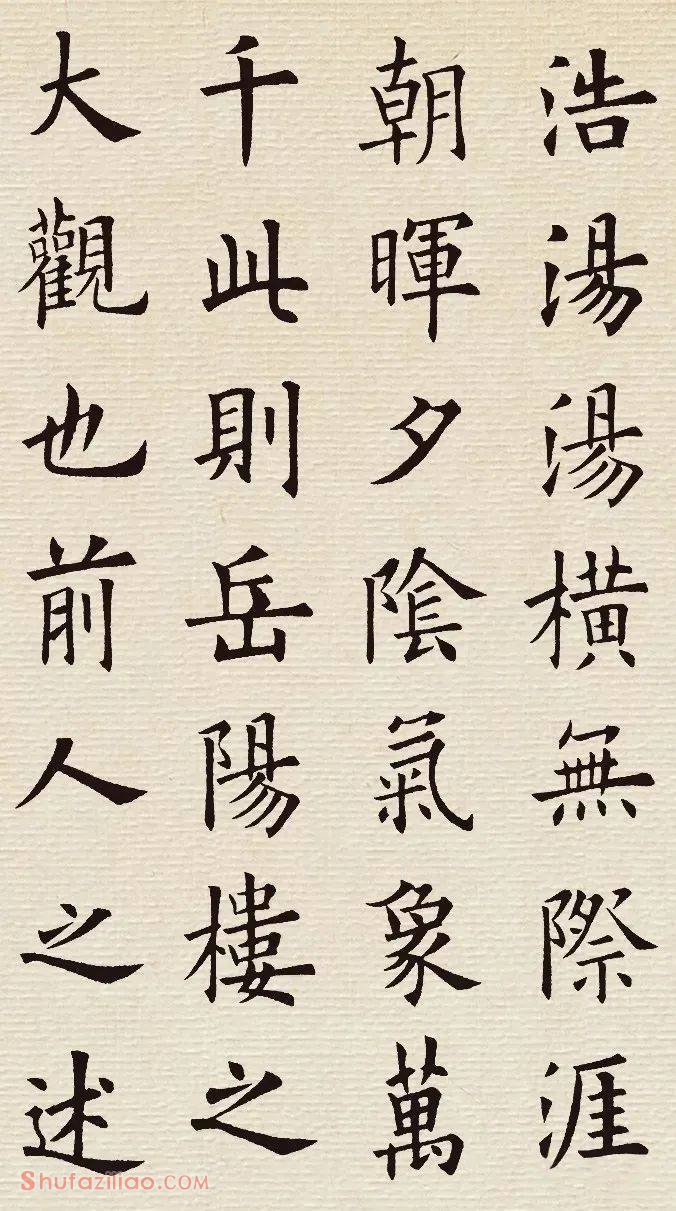 浩湯湯橫無際涯
朝暉夕陰氣象萬
千此則岳陽樓之
大觀也前人之述
Shufaziliao.COM